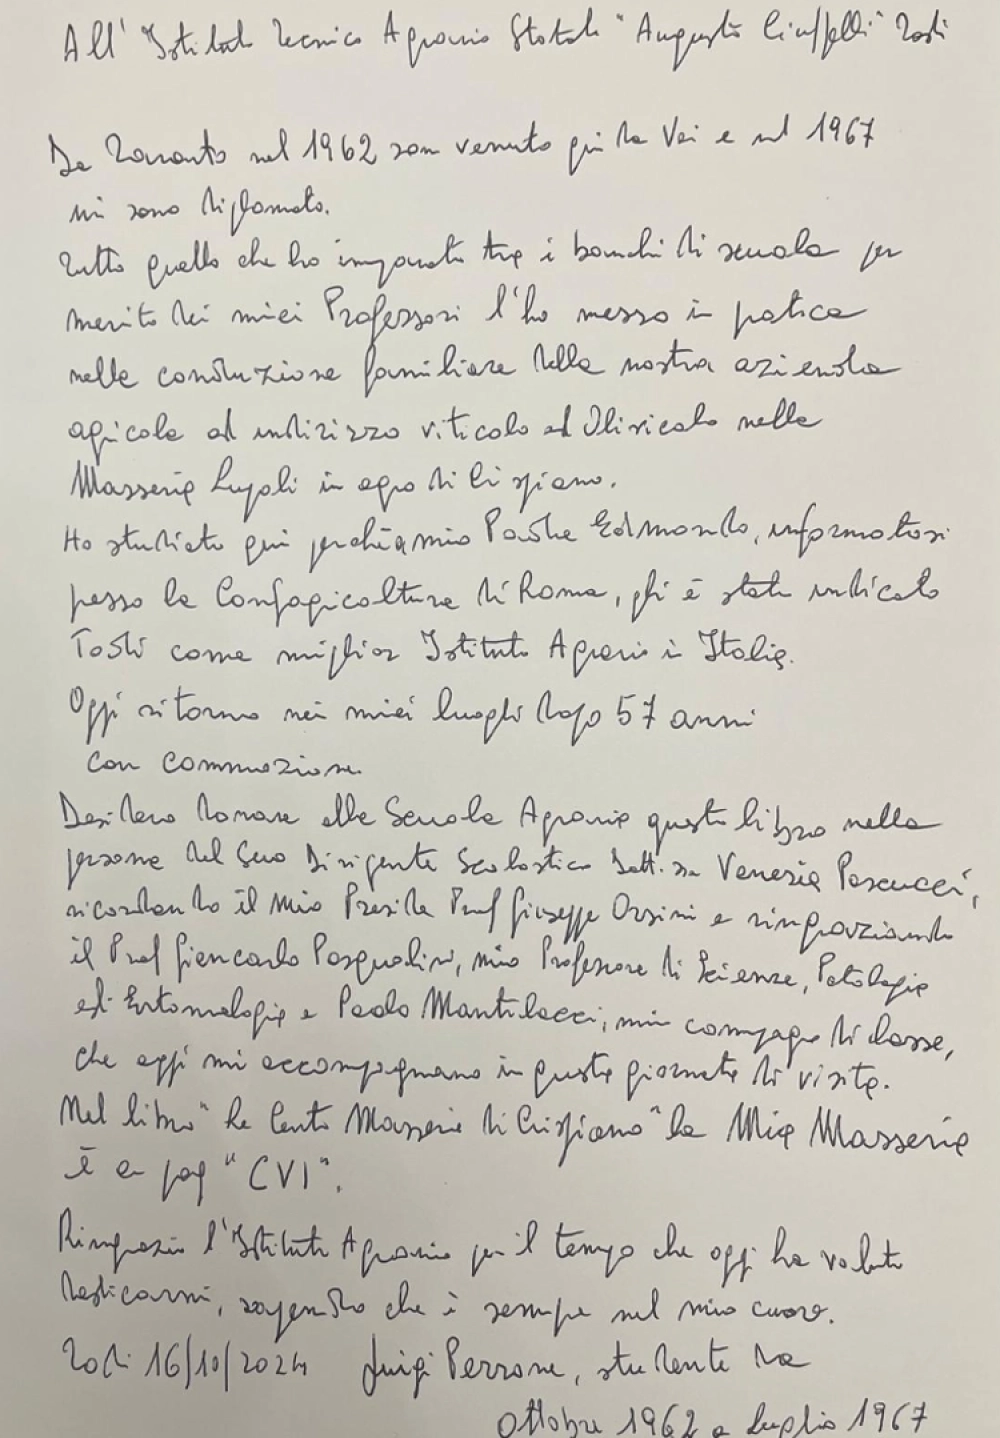 All'Istituto Tecnico Agrario Statale "Augusto Ciuffelli" Todi
Da Taranto nel 1962 son venuto qui da Voi e nel 1967
mi sono diplomato.
Tutto quello che ho imparato tra i banchi di scuola per
merito dei miei Professori l'ho messo in patica
nelle conduzione familiare della nostra azienda
agricola ad indirizzo viticolo ed Olivicolo nella
Masseria Lupoli in agro di Crispiano.
Ho studiato qui perchè a mio Padre Edmondo, informatosi
presso la Confagricoltura di Roma, gli è stato indicato
Todi come miglior Istituto Agrario in Italia.
Oggi ritorno nei miei luoghi dopo 57 anni
con commozione.
Desidero donare alla Scuola Agraria questo libro nella
persona del Suo Dirigente Scolastico Dott.ssa Venusia Pascucci,
ricordando il mio Preside Prof Giuseppe Orsini e ringraziando
il Prof Giancarlo Pasqualini, mio Professore di Scienze, Patologia
ed Entomologia e Paolo Mantilacci, mio compagno di classe,
che oggi mi accompagnano in questa giornata di visita.
Nel libro "Le Cento Masserie di Crispiano" la Mia Masseria
è a pag "CVI".
Ringrazio l'Istituto Agrario per il tempo che oggi ha voluto
dedicarmi, sapendo che è sempre nel mio cuore.
Todi 16/10/2024 Luigi Perrone, studente da
Ottobre 1962 a Luglio 1967